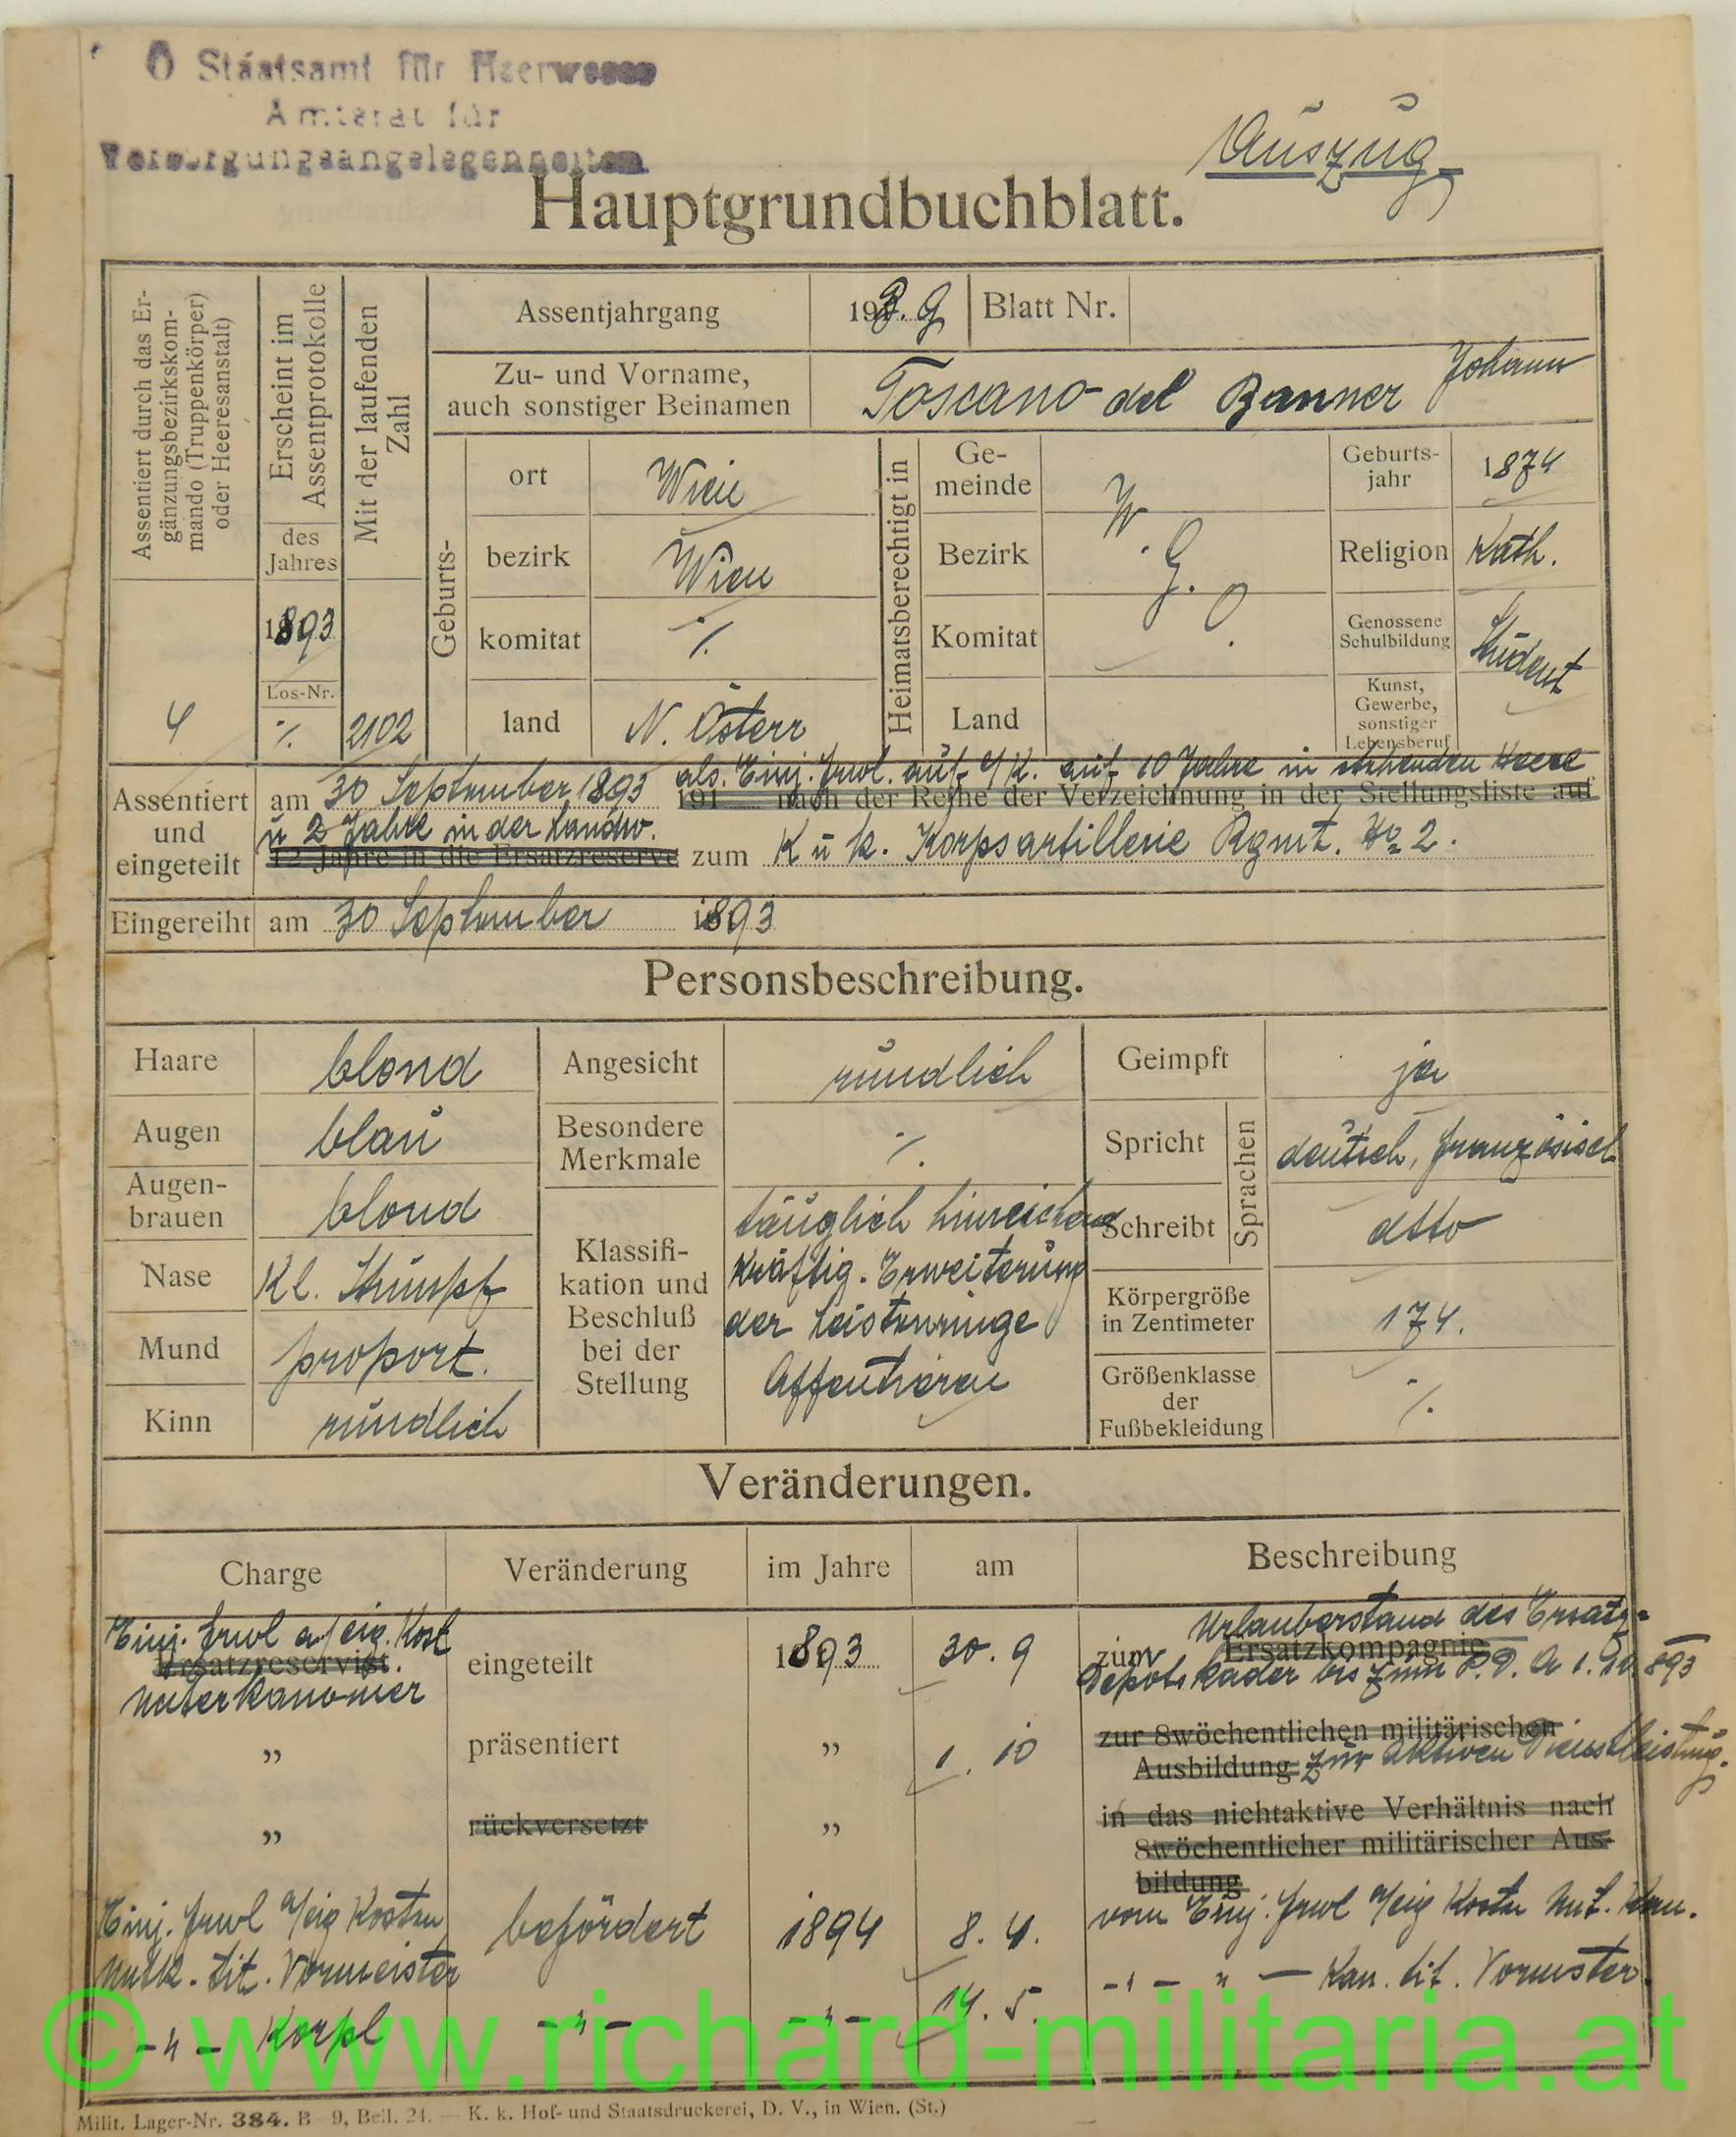 Ö Staatsamt für Heerwesen
Amtsrat für
Versorgungsangelegenheiten
Auszug
Hauptgrundbuchblatt.
Assentiert durch das Er-
gänzungsbezirkskom-
mando (Truppenkörper)
oder Heeresanstalt)
4
Erscheint im
Assentprotokolle
des
Jahres
1893
Los-Nr.
./.
Mit der laufenden
Zahl
2102
Assentjahrgang
Blatt Nr.
Zu- und Vorname,
auch sonstiger Beinamen
Toscano del Banner Johann
Geburts-
ort Wien
bezirk Wien
komitat ./.
land N. Österr
Heimatsberechtigt in
Ge-
meinde
Bezirk
Komitat
Land
Geburts-
jahr 1874
Religion Kath.
Genossene
Schulbildung Student
Kunst,
Gewerbe,
sonstiger
Lebensberuf
Assentiert
und
eingeteilt
am 30 September 1893 als Einj. Frwl. auf e/K. auf 10 Jahre in stehenden Heere
191 nach der Reihe der Verzeichnung in der Stellungsliste auf
u 2 Jahre in der Landw.
12 Jahre in die Ersatzreserve zum K u k. Korpsartillerie Rgmt. No 2.
Eingereiht am 30 September 1893
Personsbeschreibung.
Haare blond
Augen blau
Augen-
brauen blond
Nase Kl. Stumpf
Mund proport.
Kinn rundlich
Angesicht rundlich
Besondere
Merkmale ./.
Klassifi-
kation und
Beschluß
bei der
Stellung
tauglich hinreichend
kräftig. Erweiterung
der Leistenringe
Assentieren
Geimpft ja
Sprachen
Spricht deutsch, französisch
Schreibt dtto
Körpergröße
in Zentimeter 174.
Größenklasse
der
Fußbekleidung ./.
Veränderungen.
Charge Veränderung im Jahre am Beschreibung
Einj. Frwl a/eig. Kost
Ersatzreservist.
Unterkanonier
eingeteilt 1893 30. 9
Urlauberstand des Ersatz-
zum Ersatzkompagnie
Depots kader bis zum P. D. A 1. 10. 893
„ präsentiert „ 1. 10
zur 8wöchentlichen militärischen
Ausbildung zur aktiven Dienstleistung.
„ rückversetzt „
in das nichtaktive Verhältnis nach
8wöchentlicher militärischer Aus-
bildung
Einj. Frwl a/eig Kosten
befördert 1894 8. 4.
vom Einj. Frwl a/eig Kosten Unt. Kan.
tit. Vormeister
-„- „ - Kan. tit. Vormster
-„- Korpl -„- -„- 14. 5.
© www.richard-militaria.at
Milit. Lager-Nr. 384. B—9, Beil. 24. — K. k. Hof- und Staatsdruckerei, D. V., in Wien. (St.)